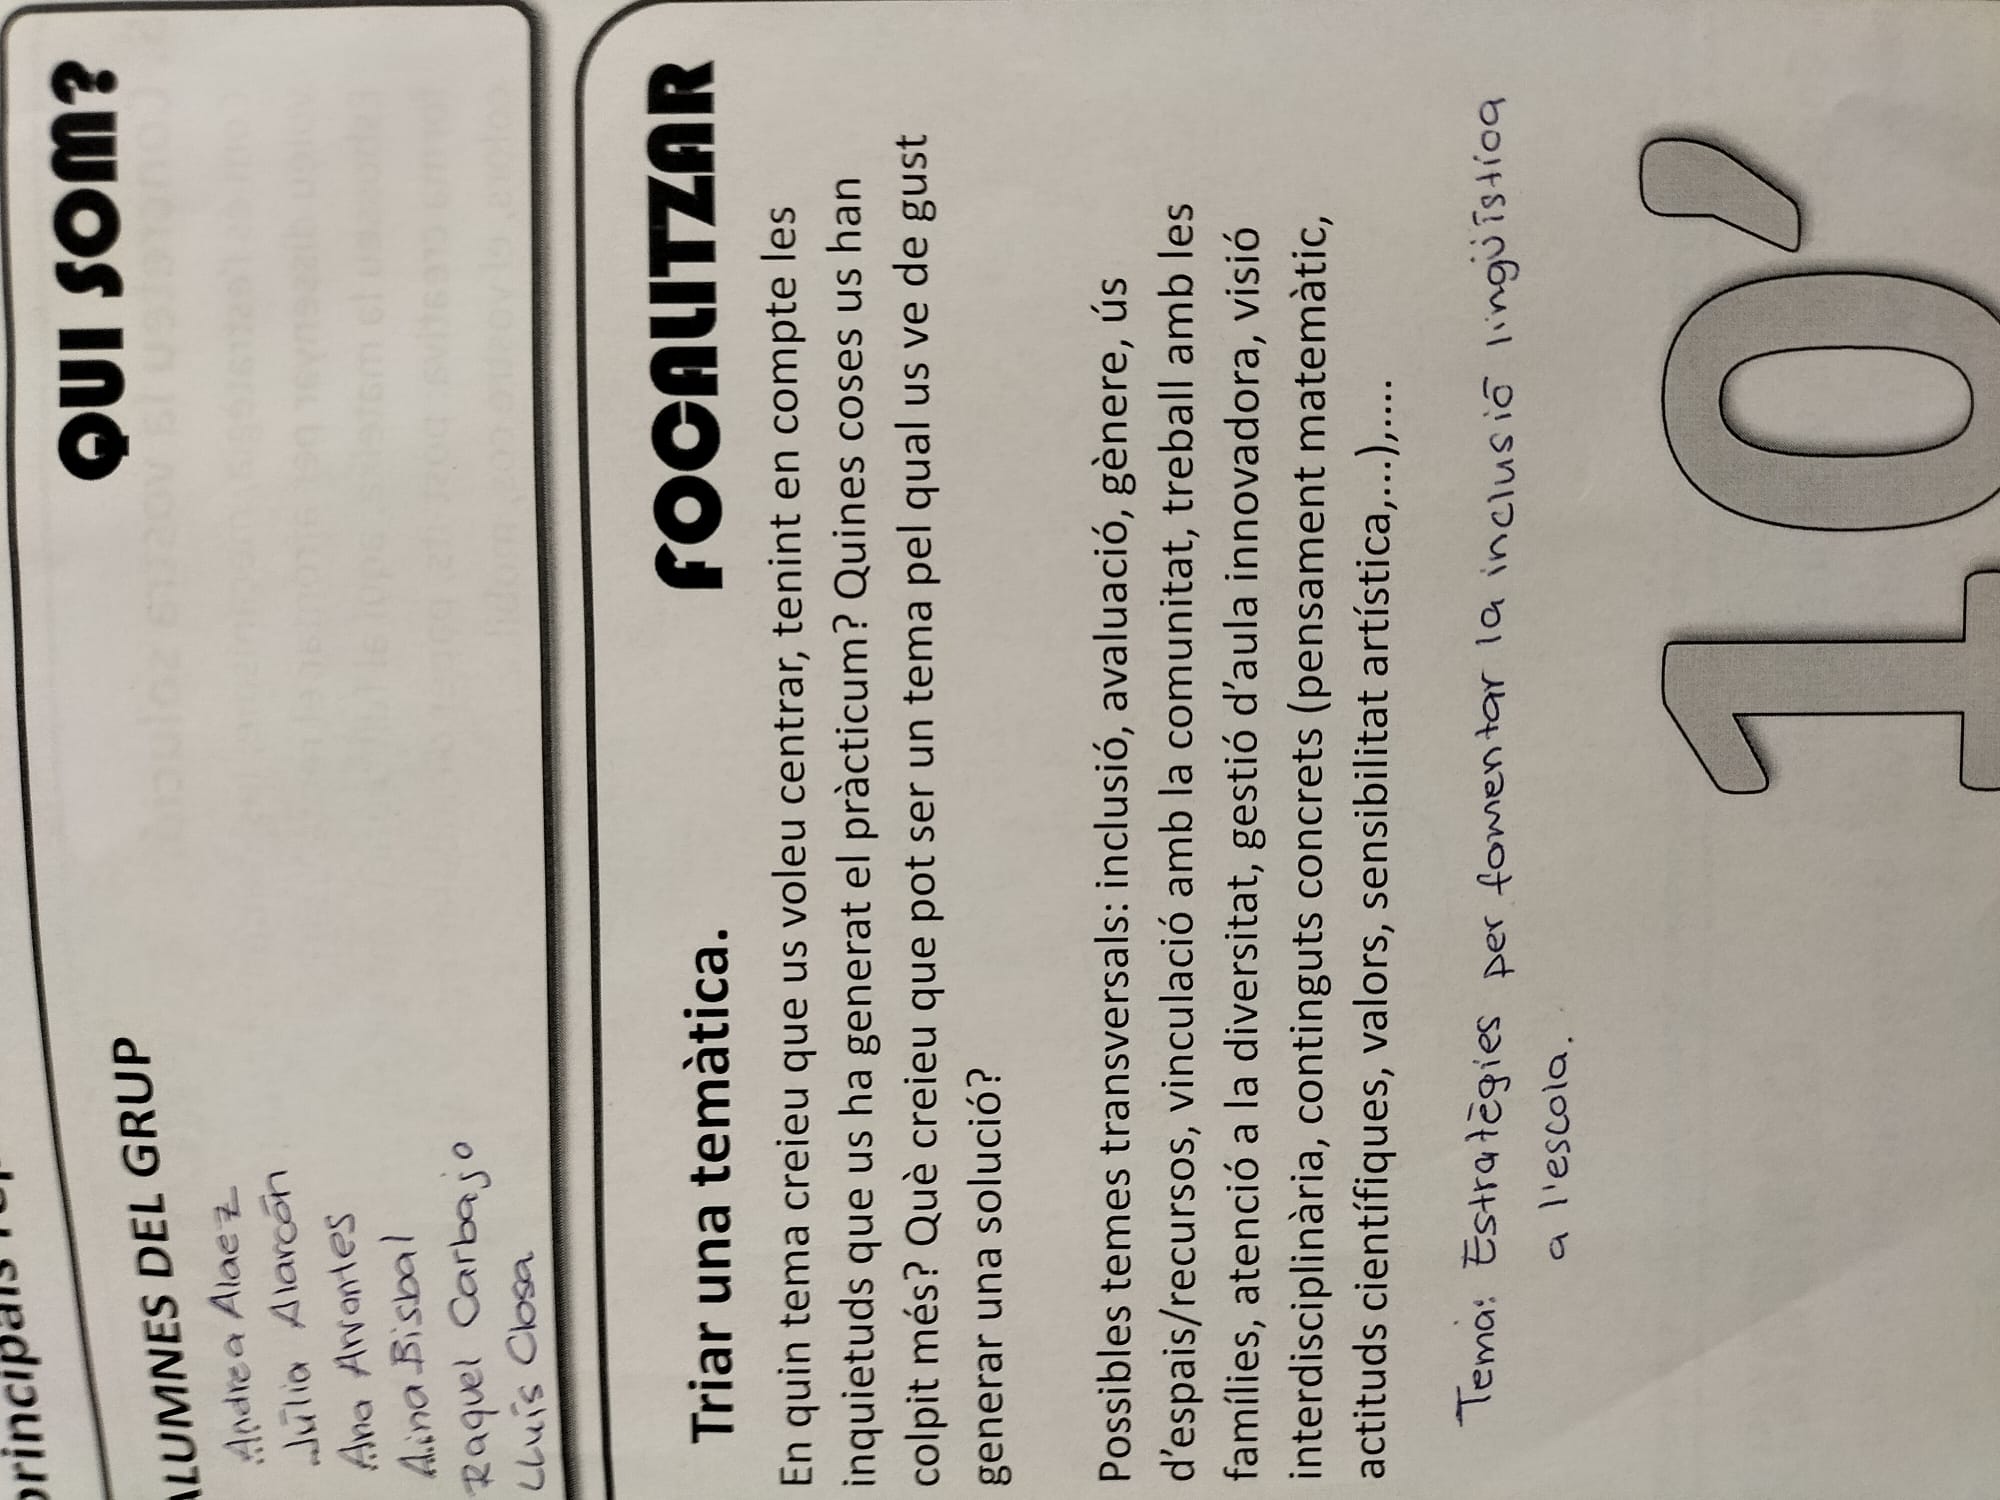 principals
QUI SOM?
ALUMNES DEL GRUP
Andrea Alaez
Júlia Alarcón
Ana Arrontes
Aina Bisbal
Raquel Carbajo
Lluís Closa
FOCALITZAR
Triar una temàtica.
En quin tema creieu que us voleu centrar, tenint en compte les
inquietuds que us ha generat el pràcticum? Quines coses us han
colpit més? Què creieu que pot ser un tema pel qual us ve de gust
generar una solució?
Possibles temes transversals: inclusió, avaluació, gènere, ús
d'espais/recursos, vinculació amb la comunitat, treball amb les
famílies, atenció a la diversitat, gestió d'aula innovadora, visió
interdisciplinària, continguts concrets (pensament matemàtic,
actituds científiques, valors, sensibilitat artística,...),....
Tema: Estratègies per fomentar la inclusió lingüística
a l'escola.
10'